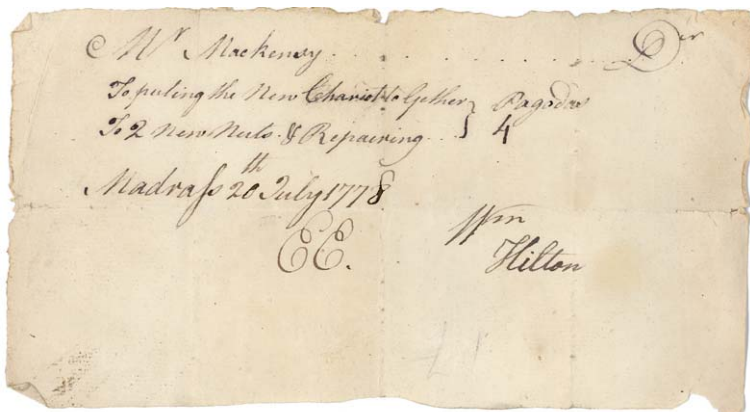 Mr Mackensy . . . . . . . . Dr
To puting the New Chariot to Gether } Pagodas
To 2 New Nuts & Repairing } 4
Madrass 20th July 1778
EE.
Wm
Hilton